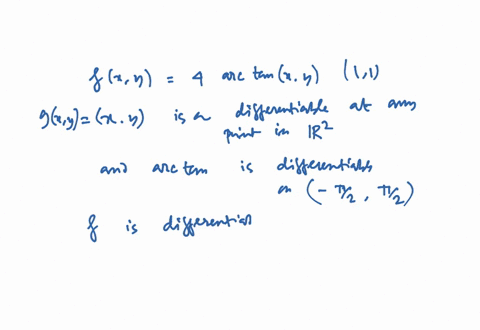 f(x,y) = 4 arc tan(x.y) (1,1)
g(x,y)=(x.y) is a differentiable at any
point in ℝ²
and arc tan is differentiable
on (-π/2, π/2)
f is differential